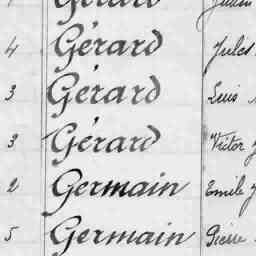 Gérard
4 Gérard Jules
3 Gérard Luis
3 Gérard Victor
2 Germain Emile
5 Germain Pierre